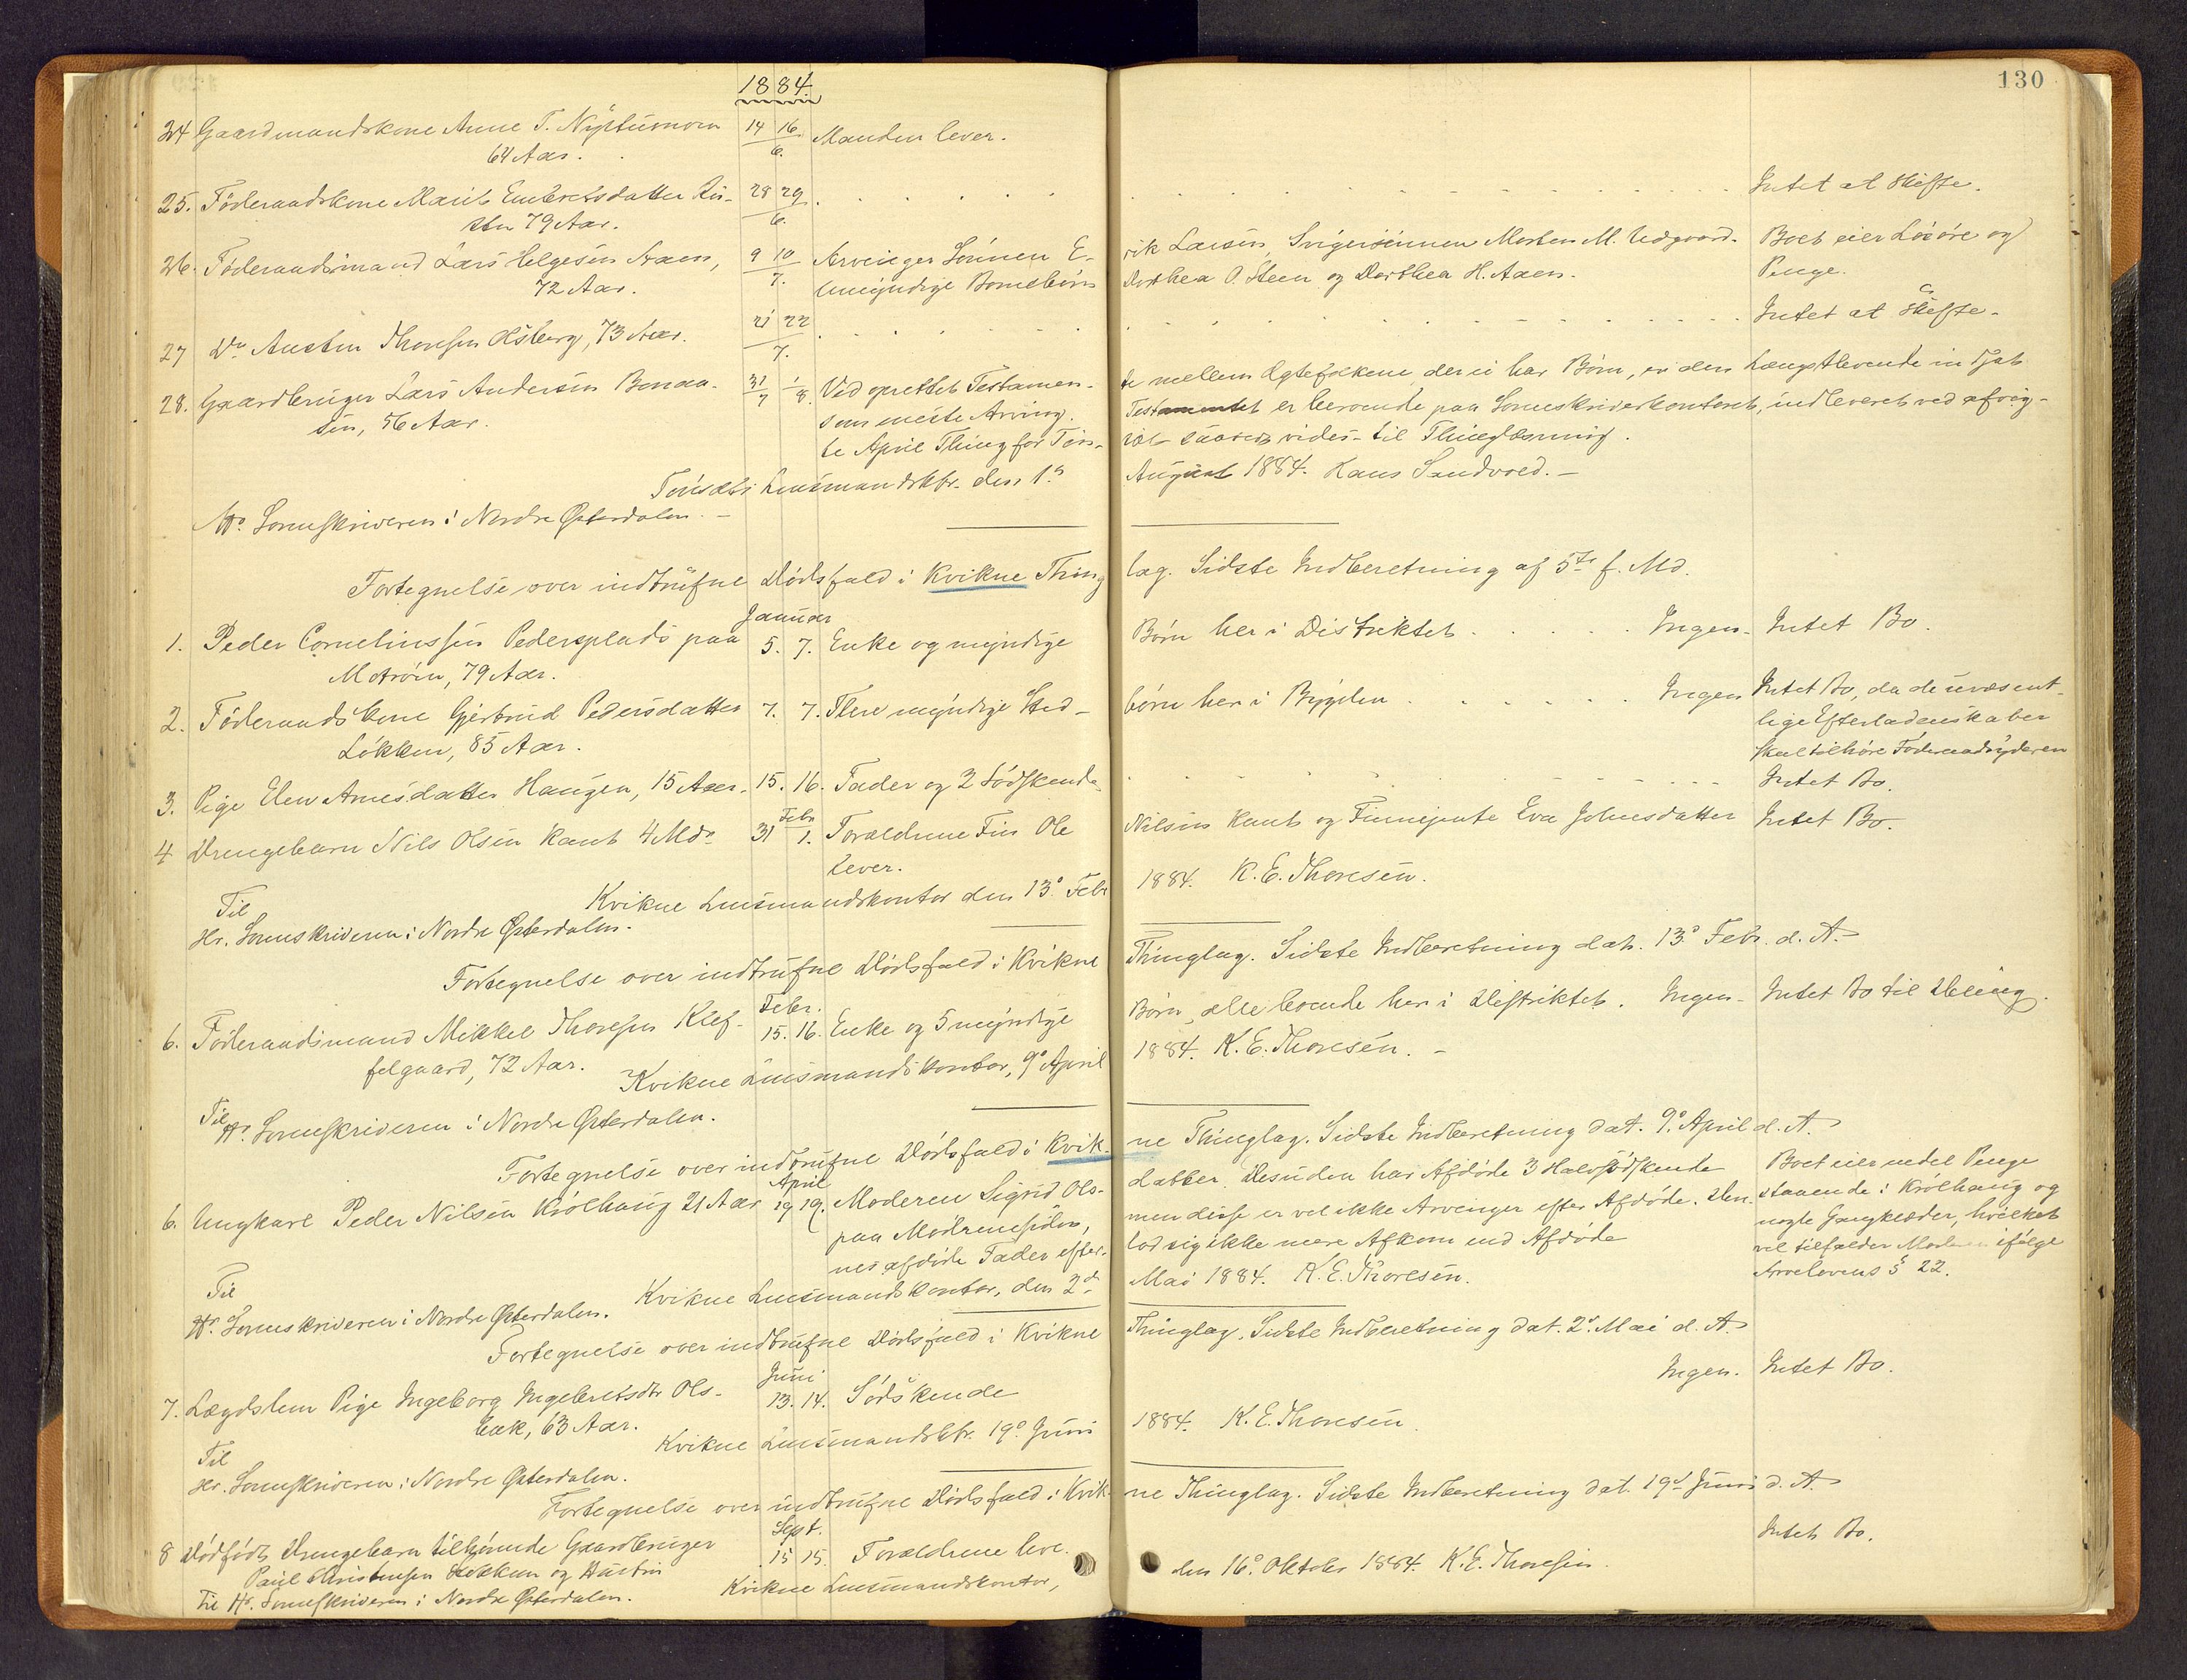 130
1884.
24 Gaardmandskone Anne T. Nystumoen 14 16 Manden lever.
64 Aar. 6.
25. Föderaadskone Marit Embretsdatter Ru- 28 29 . . . . . . Intet at skifte.
sten 79 Aar. 6.
26. Föderaadsmand Lars Helgesen Aaen, 9 10 Arvinger Sönnen E- rik Larsen, Svigersönnen Morten M. Udgaard. Boet eier Lösöre og
72 Aar. 7. Umyndige Börnebörn Dorthea O. Steen og Dorthea H. Aaen. Penge.
27 Do Austen Thoresen Aasberg, 73 Aar. 21 22 . . . . . . Intet at Skifte.
7.
28. Gaardbruger Lars Andersen Bonaa- 31/7 1/8. Ved oprettet Testamen- te mellem Ægtefolkene, der ei har Børn, er den Længstlevende indsat
sen, 56 Aar. som eneste Arving. Testamentet er beroende paa Sorenskriverkontoret, indleveret ved afvig-
te April Thing for Tön- set saavidt vides til Thinglæsning.
Tönsæts Lensmandsktr. den 1ste August 1884. Hans Sandvold. –
Hr. Sorenskriveren i Nordre Østerdalen. –
Fortegnelse over indtrufne Dödsfald i Kvikne Thing lag. Sidste Indberetning af 5te f. Md.
Januar
1. Peder Corneliussen Pedersplads paa 5. 7. Enke og myndige Börn her i Distriktet . . . . . Ingen. Intet Bo.
Moströen, 79 Aar.
2. Föderaadskone Gjertrud Pedersdatter 7. 7. Flere myndige Sted- börn her i Bygden . . . . . . Ingen Intet Bo, da de uvæsent-
Løkken, 85 Aar. lige Efterladenskaber
skal tilhøre Föderaadsyderen
3. Pige Elen Arnesdatter Haugen, 15 Aar. 15. 16. Fader og 2 Södskende. . . . . . . Intet Bo.
Febr
4 Drengebarn Nils Olsen Kant 4 Mdr 31 1. Forældrene Fin Ole Nilsen Kant og Finnejente Eva Johnsdatter Intet Bo.
lever.
Kvikne Lensmandskontor den 13de Febr 1884. K. E. Thoresen.
Til
Hr. Sorenskriveren i Nordre Østerdalen.
Fortegnelse over indtrufne Dödsfald i Kvikne Thinglag. Sidste Indberetning dat. 13de Febr. d. A.
Febr.
6. Föderaadsmand Mikkel Thoresen Klef- 15. 16. Enke og 5 myndige Börn, alle boende her i Distriktet. Ingen – Intet Bo til Deling.
felgaard, 72 Aar.
Kvikne Lensmandskontor, 9de April 1884. K. E. Thoresen. –
Til
Hr. Sorenskriveren i Nordre Østerdalen.
Fortegnelse over indtrufne Dödsfald i Kvik- ne Thinglag. Sidste Indberetning dat. 9de April d. A.
April
6. Ungkarl Peder Nilsen Krölhaug 21 Aar 19 19. Moderen Sigrid Ols- datter. Desuden har Afdöde 3 Halvsödskende Boet eier nedel Penge
paa Mödrenesiden, men disse er vel ikke Arvinger efter Afdöde. Den- staaende i Krölhaug og
nes afdöde Fader efter- lod sig ikke mere Afkom end Afdöde nogle Gangklæder, hvilket
vel tilfalder Moderen ifölge
Arvelovens § 22.
Kvikne Lensmandskontor, den 2den Mai 1884. K. E. Thoresen.
Til
Hr. Sorenskriveren i Nordre Østerdalen.
Fortegnelse over indtrufne Dödsfald i Kvikne Thinglag. Sidste Indberetning dat. 2den Mai d. A.
Juni
7. Lægdslem Pige Ingeborg Ingebretsdtr Ols- 13. 14. Södskende Ingen. Intet Bo.
bak, 63 Aar.
Kvikne Lensmandsktr. 19de Juni 1884. K. E. Thoresen
Til
Hr. Sorenskriveren i Nordre Østerdalen.
Fortegnelse over indtrufne Dödsfald i Kvik- ne Thinglag. Sidste Indberetning dat. 19de Juni d. A.
Sept.
8 Dödfödt Drengebarn tilhörende Gaardbruger 15 15. Forældrene leve. Intet Bo.
Paul Christensen Løkken og Hustru
Kvikne Lensmandskontor, den 16de Oktober 1884. K. E. Thoresen.
Til Hr. Sorenskriveren i Nordre Østerdalen.